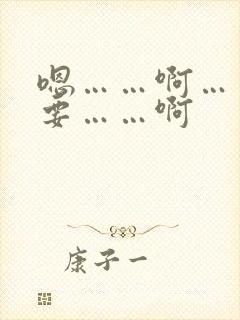 嗯……啊…
要……啊
康子一